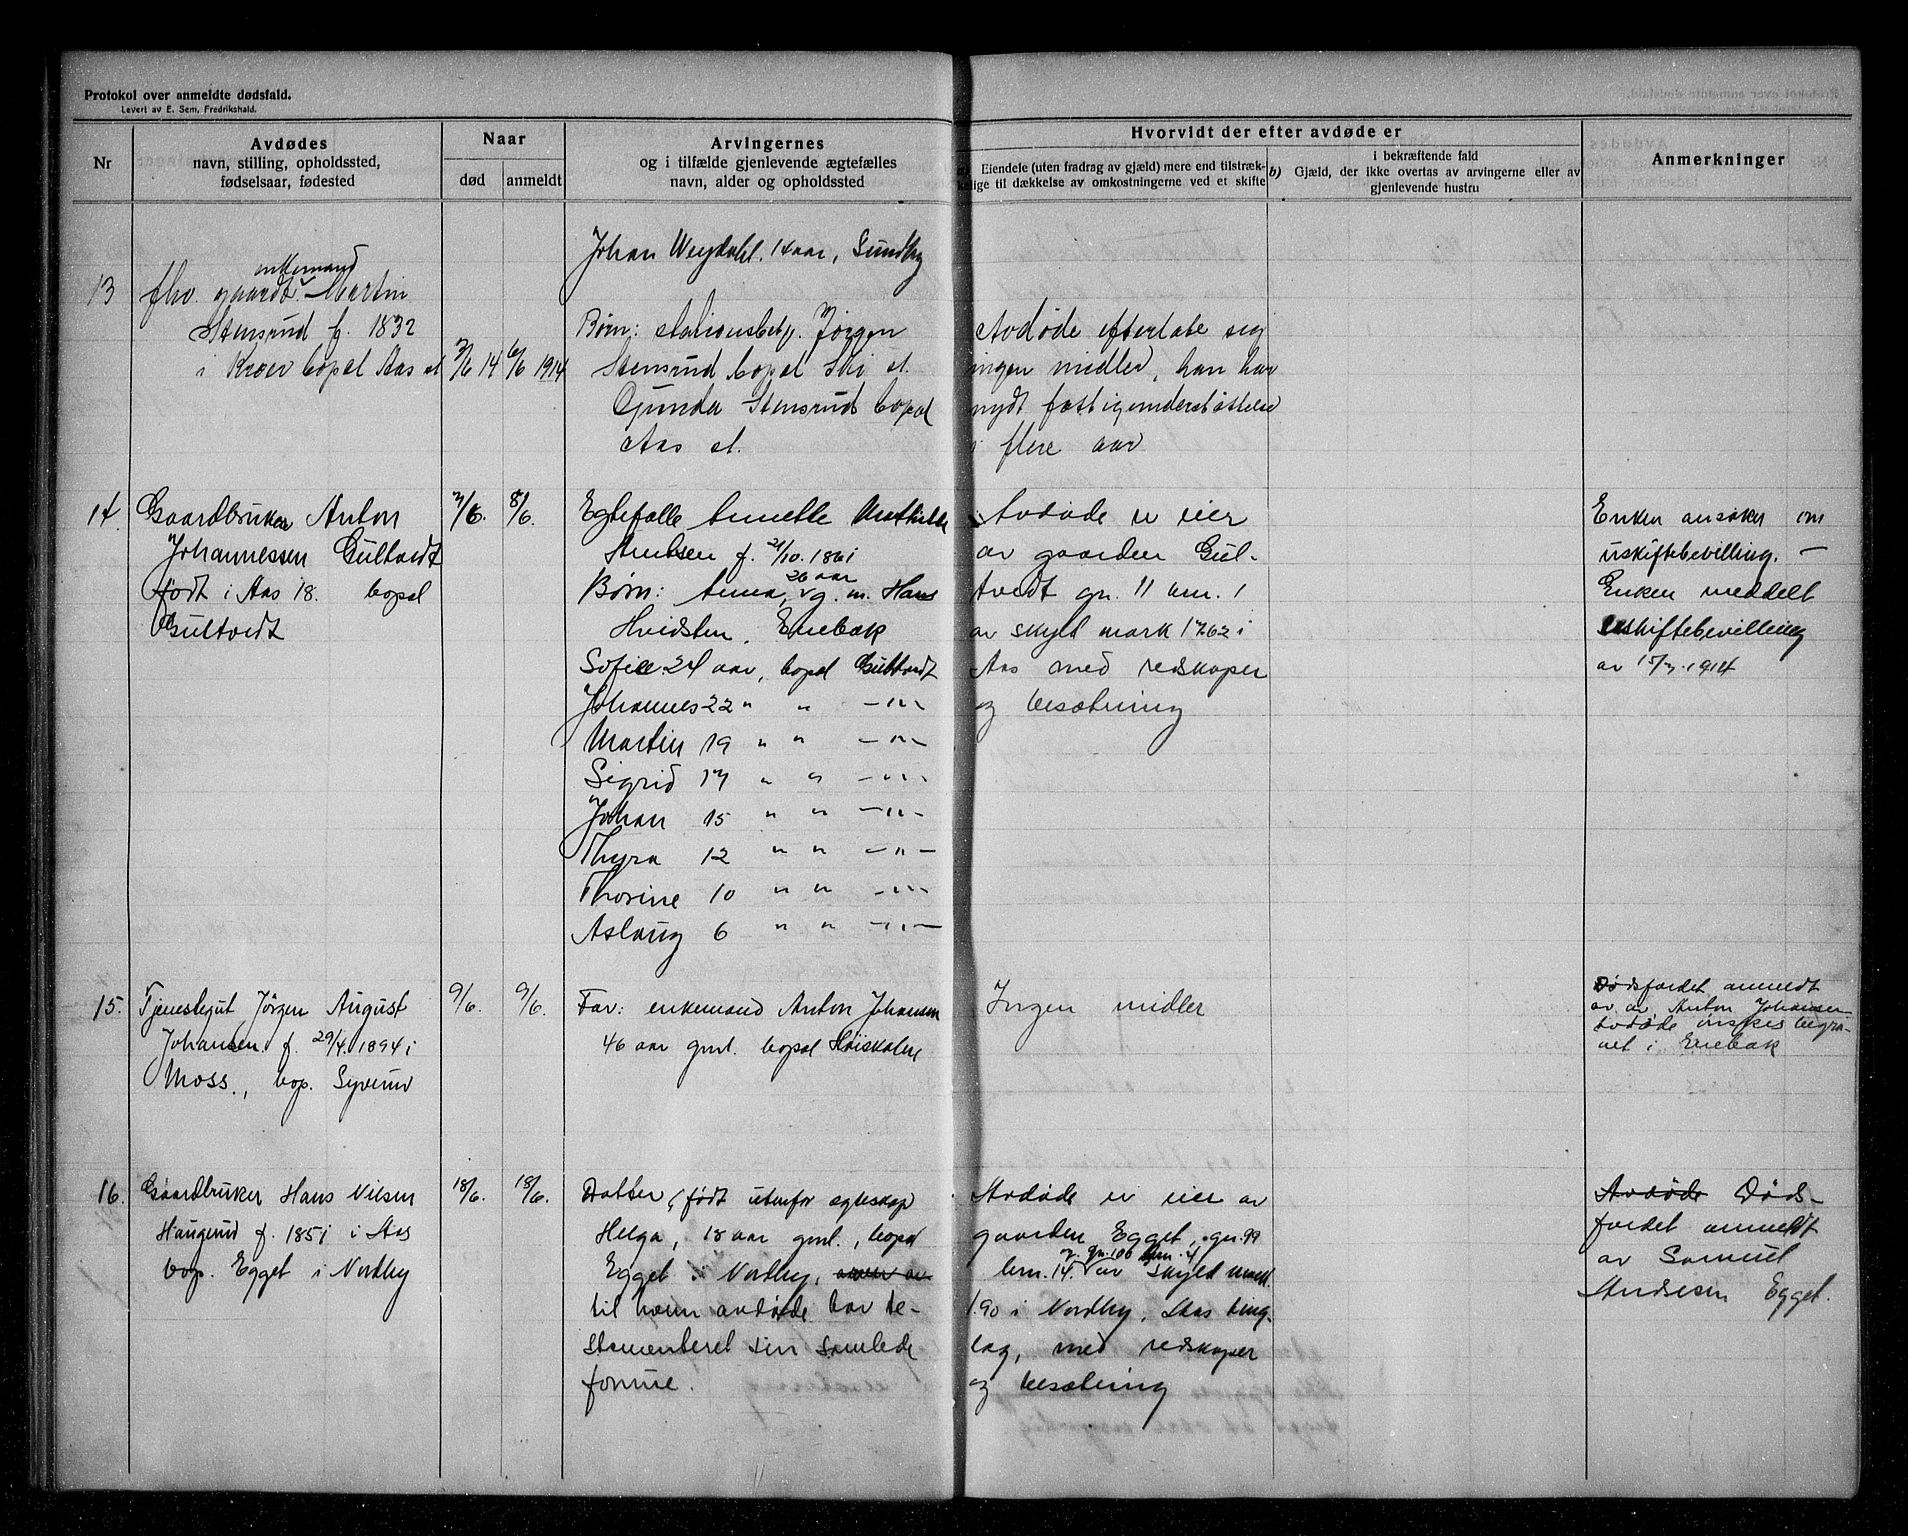 Protokol over anmeldte dødsfald.
Levert av E. Sem, Fredrikshald.
Nr
Avdødes
navn, stilling, opholdssted,
fødselsaar, fødested
Naar
død
anmeldt
Arvingernes
og i tilfælde gjenlevende ægtefælles
navn, alder og opholdssted
Hvorvidt der efter avdøde er
Eiendele (uten fradrag av gjæld) mere end tilstræk-
kelige til dækkelse av omkostningerne ved et skifte
b)
i bekræftende fald
Gjæld, der ikke overtas av arvingerne eller av
gjenlevende hustru
Anmerkninger
Johan 14 aar, Sundby
13
enkemand
fhv. gaardbr Martin
Stensrud f. 1832
i Kroer bopel Aas st
14
6/6 1914
Børn: stationsbetj. Jørgen
Stensrud bopel Ski st.
Gunda Stensrud bopel
Aas st.
Avdøde efterlate sig
ingen midler, han har
nydt fattigunderstøttelse
i flere aar
14.
Gaardbruker Anton
Johannessen Gultvedt
født i Aas 18. bopel
Gultvedt
7/6.
8/6.
Egtefælle Annette Mathilde
f. 21/10. 1861
Børn: Anna, 26 aar g. m. Hans
Hvidsten, Enebak
Sofie 24 aar, bopel Gultvedt
Johannes 22 " " -"-
Martin 19 " " -"-
Sigrid 17 " " -"-
Johan 15 " " -"-
Thyra 12 " " -"-
Thorine 10 " " -"-
Aslaug 6 " " -"-
Avdøde er eier
av gaarden Gul-
tvedt gn. 11 brn. 1
av skyld mark 17.62 i
Aas med redskaper
og besætning
Enken ansøker om
uskiftebevilling. —
Enken meddelt
uskiftebevilling
av 15/7. 1914
15.
Tjenestegut Jørgen August
Johansen. f. 29/4. 1894 i
Moss., bop. Syverud
9/6.
9/6.
Far: enkemand Anton Johansen
46 aar gml. bopel
Ingen midler
Dødsfaldet anmeldt
av av Anton Johansen
Avdøde ønskes begra-
vet i Enebak
16.
Gaardbruker Hans Nilsen
Haugerud f. 1851 i Aas
bop. Egget i Nordby
18/6.
18/6.
Datter, født utenfor egteskap
Helga, 18 aar gml., bopel
Egget i Nordby,
til hvem avdøde har te-
stamenteret sin samlede
formue.
Avdøde er eier av
gaarden Egget, gn. 99
brn. 14. og gn. 106 brn. 4 av skyld mark
1.90 i Nordby, Aas ting-
lag, med redskaper
og besætning
Avdøde Døds-
faldet anmeldt
av Samuel
Andersen Egget.